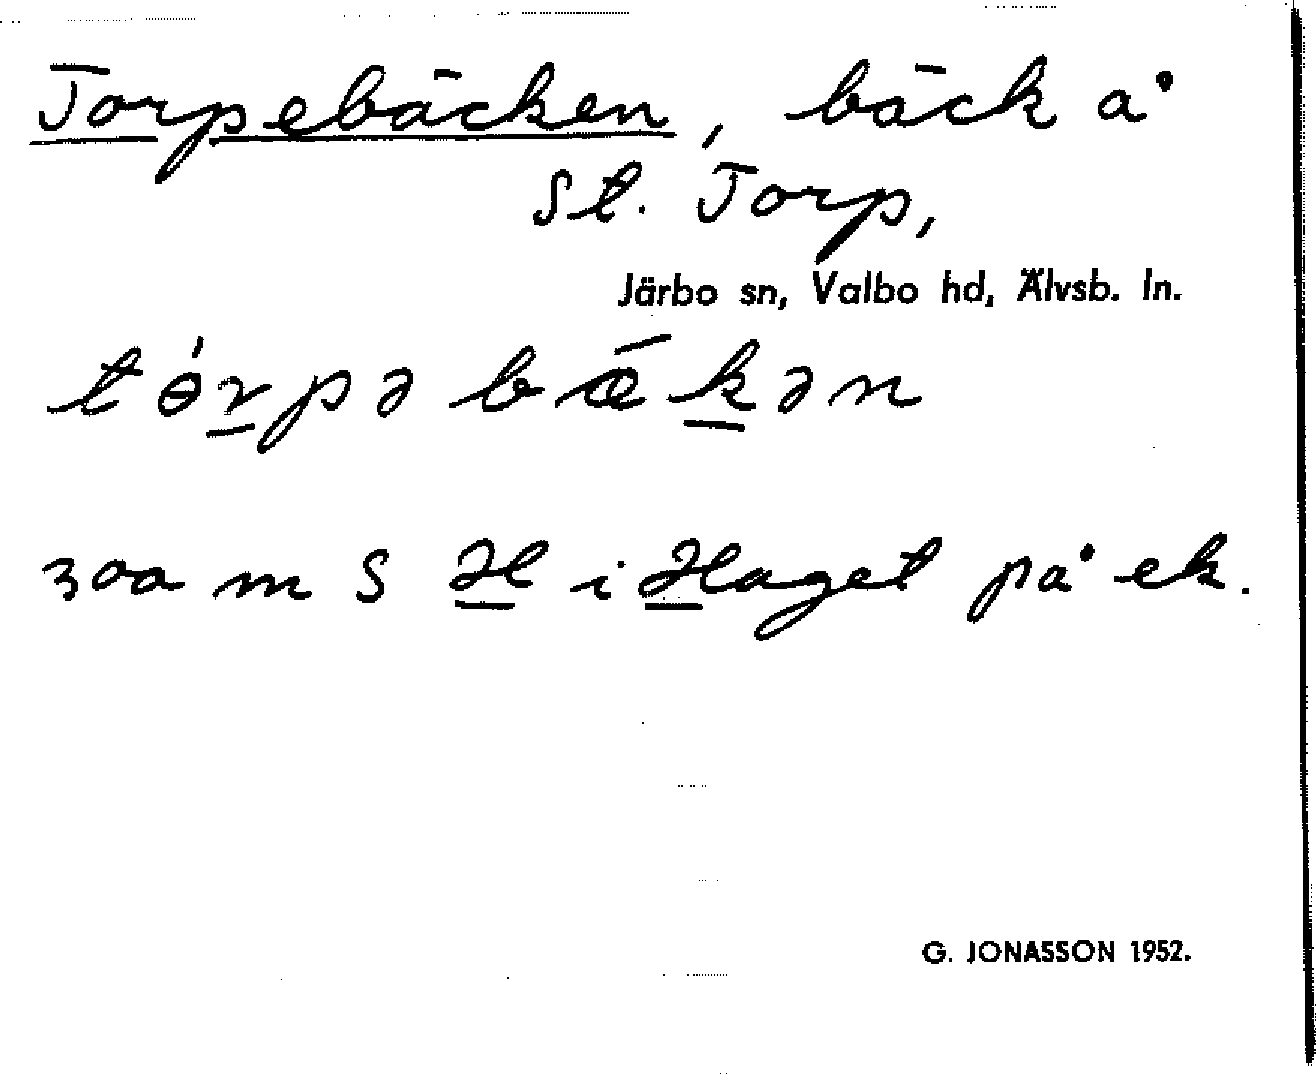 Torpebäcken, bäck å
St. Torp,
Järbo sn, Valbo hd, Älvsb. ln.
tɵ́rpə bǣkən
300 m S H i Haget på ek.
G. JONASSON 1952.